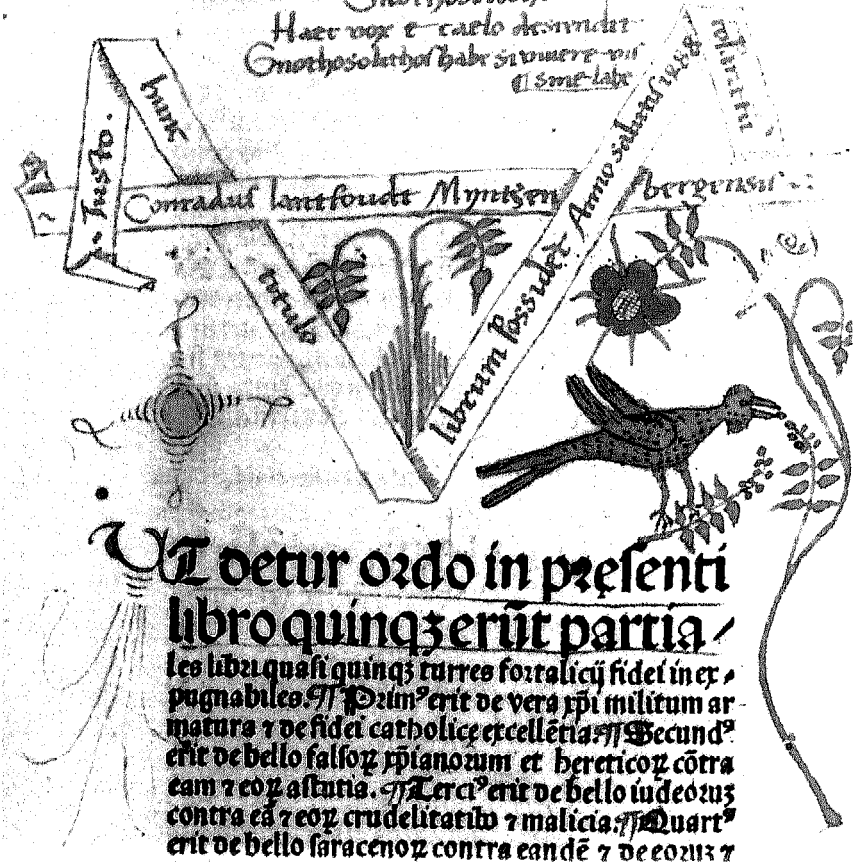 Haec vox e caelo descendit
Gnothosolithos habe si vivere vis
¶ sine labe
Justo.
hunc
titulo
Conradus lantsoudt Myntzenbergensis
librum possidet Anno salutis 1488
UT detur ordo in pręsenti
libro quinqꝫ erūt partia⸗
les libri quasi quinqꝫ turres fortalicij fidei inex⸗
pugnabiles. ¶ Primꝰ erit de vera xp̄i militum ar
matura ⁊ de fidei catholicę excellētia. ¶ Secundꝰ
erit de bello falsoꝝ xp̄ianorum et hereticoꝝ cōtra
eam ⁊ eoꝝ astutia. ¶ Terciꝰ erit de bello iudeoruꝫ
contra eā ⁊ eoꝝ crudelitatibꝰ ⁊ malicia. ¶ Quartꝰ
erit de bello saracenoꝝ contra eandē ⁊ de eoruꝫ ⁊